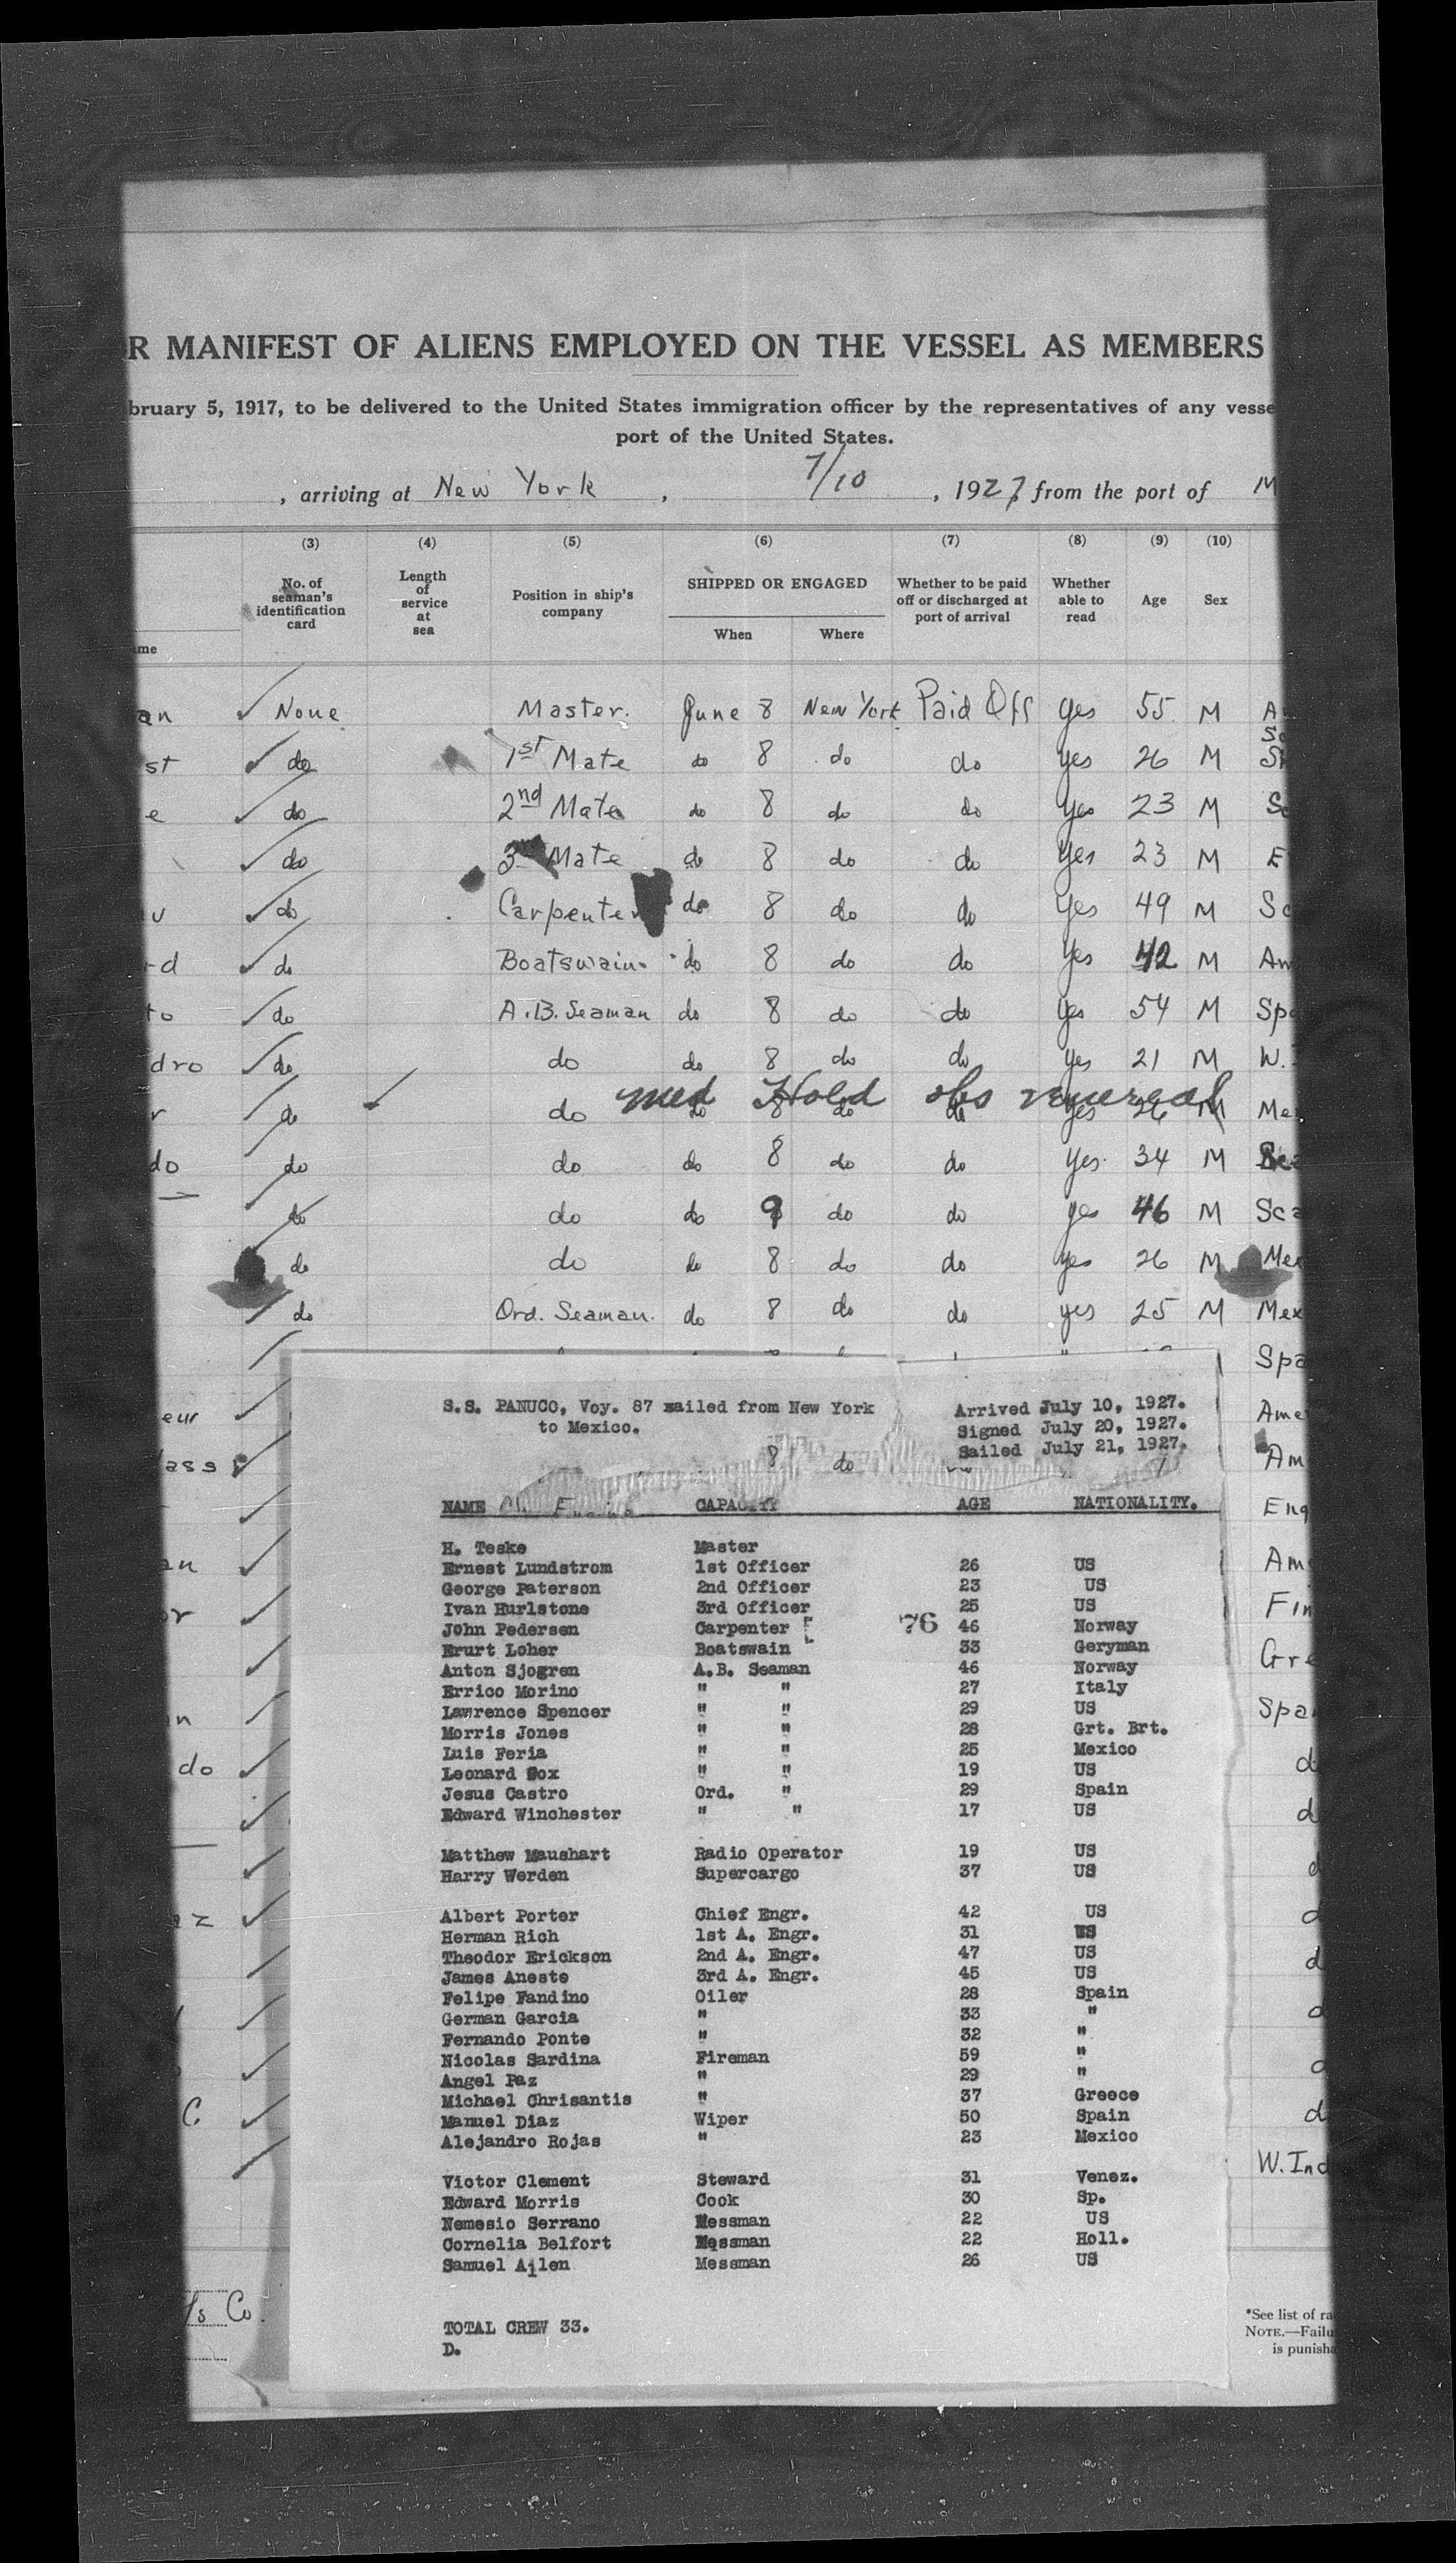 R MANIFEST OF ALIENS EMPLOYED ON THE VESSEL AS MEMBERS
bruary 5, 1917, to be delivered to the United States immigration officer by the representatives of any vesse
port of the United States.
, arriving at New York , 7/10 , 1927, from the port of M
(3) (4) (5) (6) (7) (8) (9) (10)
No. of seaman's identification card Length of service at sea Position in ship's company SHIPPED OR ENGAGED When Where Whether to be paid off or discharged at port of arrival Whether able to read Age Sex
me
an None Master. June 8 New York Paid Off yes 55 M A
st do 1st Mate do 8 do do yes 26 M
e do 2nd Mate do 8 do do yes 23 M Sc
do 3rd Mate do 8 do do yes 23 M E
v do Carpenter do 8 do do yes 49 M Sc
rd do Boatswain. do 8 do do yes 42 M Am
to do A.B. Seaman do 8 do do yes 54 M Spa
dro do do do 8 do do yes 21 M W.
med Hold obs venereal
r do do do 8 do do yes 26 M Me
do do do do 8 do do yes. 34 M
do do do 9 do do yes 46 M Sca
do do do 8 do do yes 26 M Mex
do Ord. Seaman. do 8 do do yes 25 M Mex
Spa
eur Ame
ass Am
Eng
an Am
or Fin
Gre
n Spa
do d
d
d
az d
d
d
d
C. d
W. Ind
S.S. PANUCO, Voy. 87 sailed from New York Arrived July 10, 1927.
to Mexico. Signed July 20, 1927.
8 do Sailed July 21, 1927.
NAME CAPACITY AGE NATIONALITY.
H. Teske Master
Ernest Lundstrom 1st Officer 26 US
George Paterson 2nd Officer 23 US
Ivan Hurlstone 3rd Officer 25 US
John Pedersen Carpenter 76 46 Norway
Erurt Loher Boatswain 33 Geryman
Anton Sjogren A.B. Seaman 46 Norway
Errico Morino " " 27 Italy
Lawrence Spencer " " 29 US
Morris Jones " " 28 Grt. Brt.
Luis Feria " " 25 Mexico
Leonard Cox " " 19 US
Jesus Castro Ord. " 29 Spain
Edward Winchester " " 17 US
Matthew Maushart Radio Operator 19 US
Harry Werden Supercargo 37 US
Albert Porter Chief Engr. 42 US
Herman Rich 1st A. Engr. 31 US
Theodor Erickson 2nd A. Engr. 47 US
James Aneste 3rd A. Engr. 45 US
Felipe Fandino Oiler 28 Spain
German Garcia " 33 "
Fernando Ponte " 32 "
Nicolas Sardina Fireman 59 "
Angel Paz " 29 "
Michael Chrisantis " 37 Greece
Manuel Diaz Wiper 50 Spain
Alejandro Rojas " 23 Mexico
Victor Clement Steward 31 Venez.
Edward Morris Cook 30 Sp.
Nemesio Serrano Messman 22 US
Cornelia Belfort Messman 22 Holl.
Samuel Ailen Messman 26 US
TOTAL CREW 33.
D.
ts Co.
*See list of ra
NOTE.—Failu
is punisha